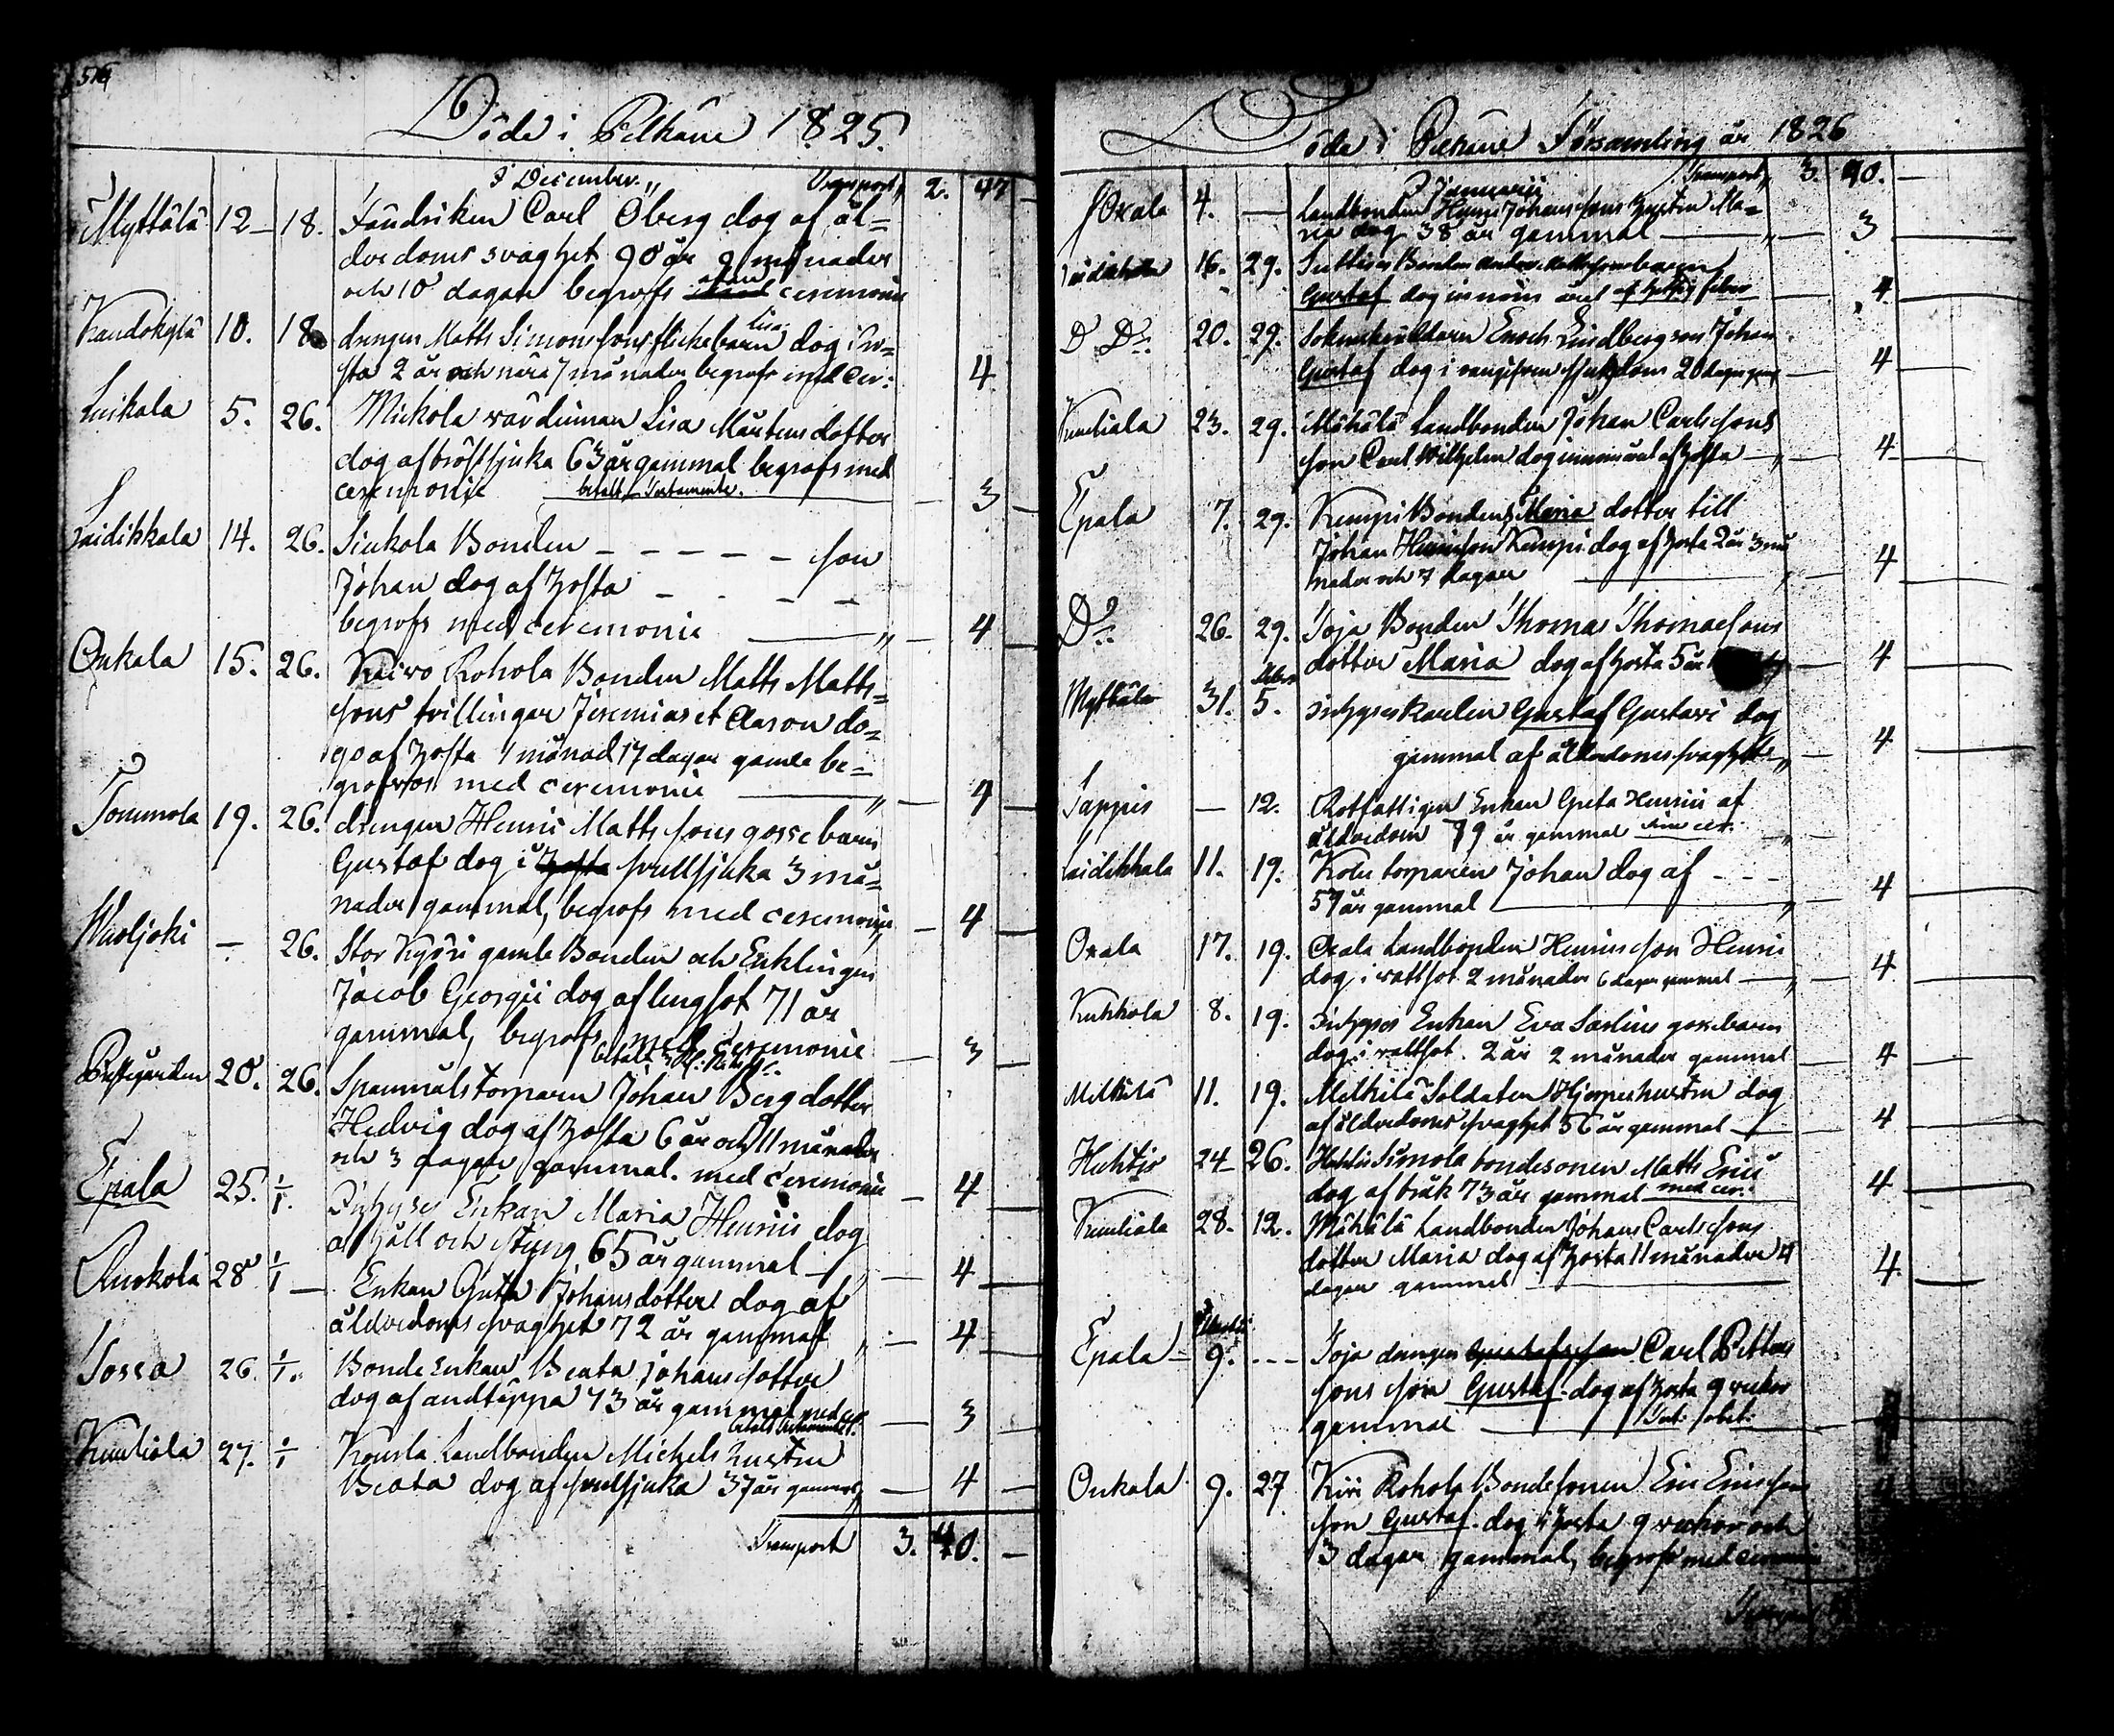 Döde i Pelkäne 1825.
I December. Transport, 2. 47
Myttälä 12 – 18. Fändriken Carl Öberg dog af ål=
derdoms svaghet 90 år 9 månader
och 10 dagar begrofs utan ceremonie
10. 18 drengen Matts Simonssons flickebarn Lisa dog i ho=
sta 2 år och nära 7 månader begrofs med Cer: 4
Luikala 5. 26. Mickola värdinnan Lisa Mårtensdotter
dog af bröstsjuka 63 år gammal begrofs med
ceremonie betalt Testamente. 3
Laidikkala 14. 26. Sinkola Bonden – – – – – son
Johan dog af hosta – – – –
begrofs med ceremonie 4
Onkala 15. 26. Rohola Bonden Matts Matts=
sons tvillingar Jeremias et Aaron do=
go af hosta 1 månad 17 dagar gamla be=
grofvos med ceremonie 4
Tommola 19. 26. drengen Henric Mattssons gossebarn
Gustaf dog i hosta svullsjuka 3 må=
nader gammal, begrofs med ceremonie 4
– 26. Stor Kyöri gamle Bonden och Enklingen
Jacob Georgii dog af lungsot 71 år
gammal, begrofs med ceremonie 3
betalt
Prestgården 20. 26. Spannmåls torparen Johan Berg dotter
Hedvig dog af hosta 6 år och 11 månader
och 3 dagar gammal. med ceremonie 4
Epala 25. 1/1. Inhyses Enkan Maria Henrici dog
af håll och styng 65 år gammal 4
Ruokola 28 1/1 – Enkan Greta Johansdotter dog af
ålderdoms svaghet 72 år gammal 4
26. 1/1. Bonde Enkan Beata Johansdotter
dog af andtäppa 73 år gammal med cer. 3
betalt Testamentet.
Kuuliala 27. 1/1 Landbonden Michels hustru
Beata dog af svullsjuka 37 år gammal 4
Transport 3. 40. –
Döde i Pelkäne Församling år 1826
I Januarii Transport, 3. 40. –
Oxala 4. – Landbonden Henric Johanssons hustru Ma=
ria dog 38 år gammal 3
Laidikkala 16. 29. Bonden barn
Gustaf dog innom året af hetsig feber 4
Do Do. 20. 29. Enoch Lindbergs son Johan
Gustaf dog i sjukdom 20 dagar gam 4
Kuuliala 23. 29. Mähälä Landbonden Johan Carlssons
son Carl Wilhelm dog innom året af hosta 4
Epala 7. 29. Kemppi Bondens Maria dotter till
Johan Henricsson Kemppi dog af hosta 2 år 3 må
nader och 7 dagar 4
Do. 26. 29. Toja Bonden Thomas Thomassons
dotter Maria dog af hosta 5 år 4
Febr.
Myttälä 31. 5. Inhyseskarlen Gustaf Gustavi dog
gammal af ålderdomssvaghet 4
Sappis – 12. Rotfattigen Enkan Greta Henrici af
ålderdom 79 år gammal sine cer.
Laidikkala 11. 19. torparen Johan dog af – – –
57 år gammal 4
Oxala 17. 19. Oxala Landbonden Henrics son Henric
dog i vattsot 2 månader 6 dagar gammal 4
Kukkola 8. 19. Inhyses Enkan Eva gossebarn
dog i vattsot. 2 år 2 månader gammal 4
Mälkilä 11. 19. Mälkilä Soldaten hustru dog
af ålderdoms svaghet 56 år gammal 4
Huhtis 24 26. Huhtis Simola bondesonen Matts Erici
dog af bråk 73 år gammal med cer. 4
Kuuliala 28. 12. Mähälä Landbonden Johans Carlssons
dotter Maria dog af hosta 11 månader 4
dagar gammal 4.
Epala – 9. – – – Toja drengen Gustafsson Carl Petters
sons son Gustaf dog af hosta 9 veckor
gammal
Onkala 9. 27 Rohola Bondesonen Eric Ericssons
son Gustaf dog i hosta 9 veckor och
3 dagar gammal, begrofs med ceremonie
Transport